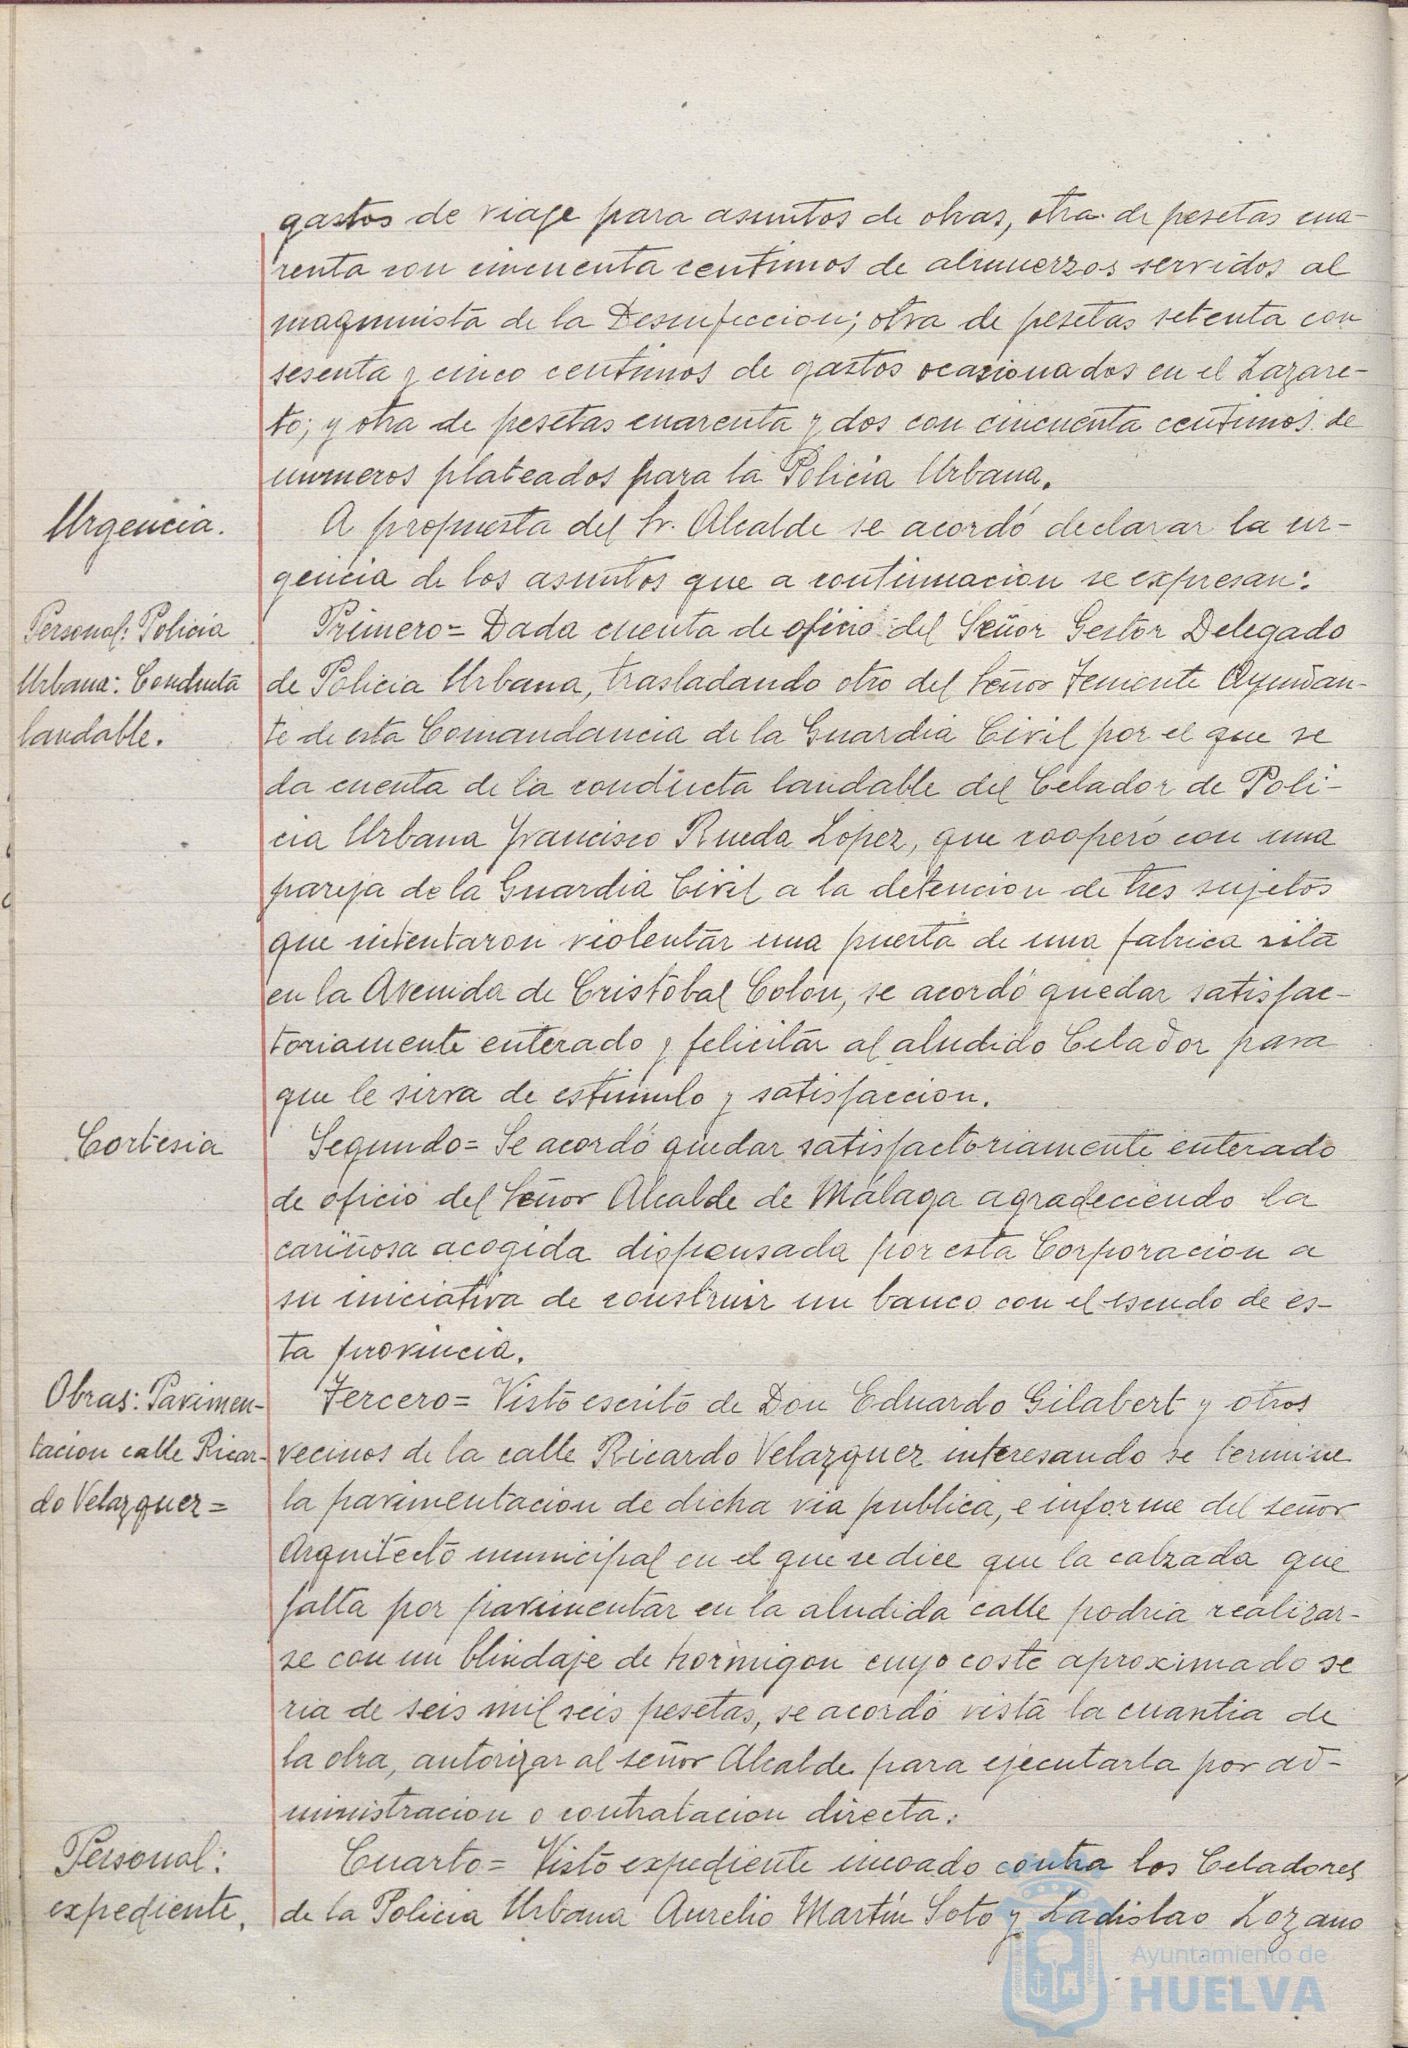 gastos de viaje para asuntos de obras, otra de pesetas cua-
renta con cincuenta centimos de almuerzos servidos al
maquinista de la Desinfeccion; otra de pesetas setenta con
sesenta y cinco centimos de gastos ocasionados en el Lazare-
to; y otra de pesetas cuarenta y dos con cincuenta centimos de
numeros plateados para la Policia Urbana.
Urgencia.
A propuesta del Sr. Alcalde se acordó declarar la ur-
gencia de los asuntos que a continuacion se expresan:
Personal: Policia
Urbana: Conducta
laudable.
Primero= Dada cuenta de oficio del Señor Gestor Delegado
de Policia Urbana, trasladando otro del Señor Teniente Ayudan-
te de esta Comandancia de la Guardia Civil por el que se
da cuenta de la conducta laudable del Celador de Poli-
cia Urbana Francisco Rueda Lopez, que cooperó con una
pareja de la Guardia Civil a la detencion de tres sujetos
que intentaron violentar una puerta de una fabrica sita
en la Avenida de Cristóbal Colon, se acordó quedar satisfac-
toriamente enterado y felicitar al aludido Celador para
que le sirva de estimulo y satisfaccion.
Cortesia
Segundo= Se acordó quedar satisfactoriamente enterado
de oficio del Señor Alcalde de Málaga agradeciendo la
cariñosa acogida dispensada por esta Corporacion a
su iniciativa de construir un banco con el escudo de es-
ta provincia.
Obras: Pavimen-
tacion calle Ricar-
do Velazquez=
Tercero= Visto escrito de Don Eduardo Gilabert y otros
vecinos de la calle Ricardo Velazquez interesando se termine
la pavimentacion de dicha via publica, e informe del señor
Arquitecto municipal en el que se dice que la calzada que
falta por pavimentar en la aludida calle podria realizar-
se con un blindaje de hormigon cuyo coste aproximado se
ria de seis mil seis pesetas, se acordó vista la cuantia de
la obra, autorizar al señor Alcalde para ejecutarla por ad-
ministracion o contratacion directa.
Personal:
expediente.
Cuarto= Visto expediente incoado contra los Celadores
de la Policia Urbana Aurelio Martín Soto y Ladislao Lozano
Ayuntamiento de
HUELVA